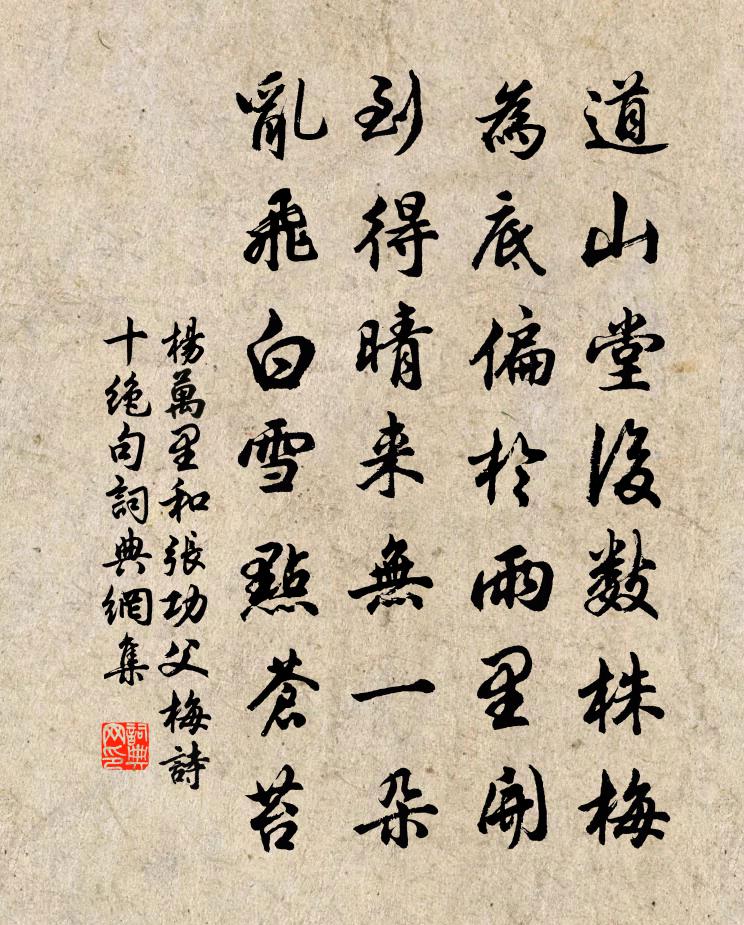 道山堂後数株梅
為底偏於雨里開
到得晴来無一朵
亂飛白雪點蒼苔
楊萬里和張功父梅詩
十絶句詞典網集
詞典網印